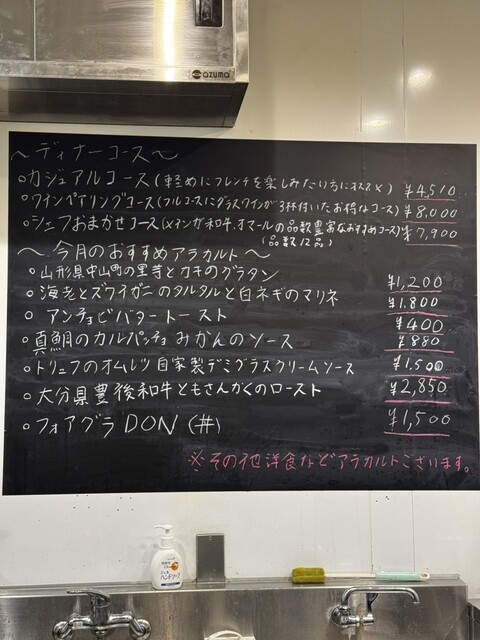 azuma
～ディナーコース～
○カジュアルコース(軽めにフレンチを楽しみたい方にオススメ) ¥4,510
○ワインペアリングコース(フルコースにグラスワインが3杯付いたお得なコース) ¥8,000
○シェフおまかせコース(メインが和牛、オマールの品数豊富なおすすめコース) ¥7,900
(品数12品)
～今月のおすすめアラカルト～
○山形県中山町の里芋とカキのグラタン ¥1,200
○海老とズワイガニのタルタルと白ネギのマリネ ¥1,800
○アンチョビバタートースト ¥400
○真鯛のカルパッチョ みかんのソース ¥880
○トリュフのオムレツ 自家製デミグラスクリームソース ¥1,500
○大分県豊後和牛ともさんかくのロースト ¥2,850
○フォアグラDON(丼) ¥1,500
※その他洋食などアラカルトございます。
ハンドソープ